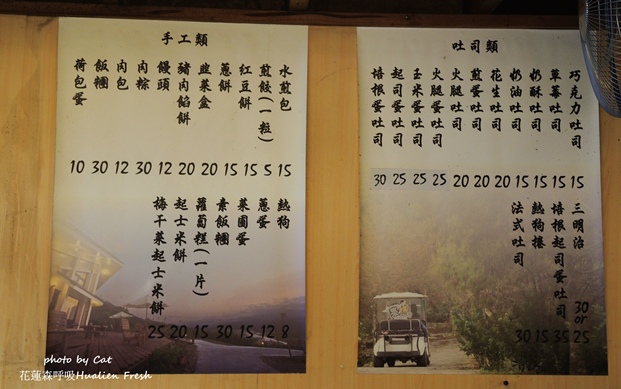 手工類
水煎包 15
煎餃(一粒) 5
紅豆餅 15
蔥餅 15
韭菜盒 20
豬肉餡餅 20
饅頭 12
肉粽 30
肉包 12
飯糰 30
荷包蛋 10
熱狗 8
蔥蛋 12
菜圃蛋 15
素飯糰 30
蘿蔔糕(一片) 15
起士米餅 20
梅干菜起士米餅 25
吐司類
巧克力吐司 15
草莓吐司 15
奶酥吐司 15
奶油吐司 15
花生吐司 20
煎蛋吐司 20
火腿吐司 20
火腿蛋吐司 25
玉米蛋吐司 25
起司蛋吐司 25
培根蛋吐司 30
三明治 30 or 25
培根起司蛋吐司 35
熱狗捲 15
法式吐司 30
photo by Cat
花蓮森呼吸Hualien Fresh